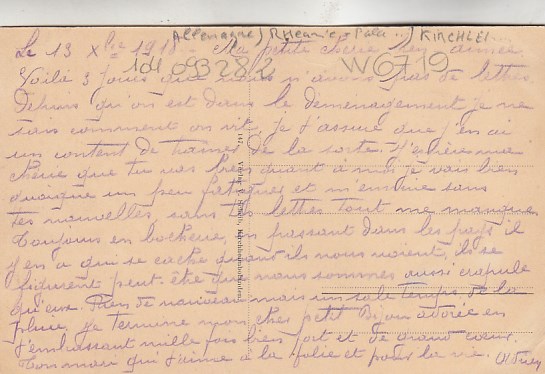 Allemagne) Rhéanie-Pala ...) KIRCHLEI
Le 13 Xbre 1918. Ma petite chérie bien aimée
101 093282
W0719
Voilà 3 jours que nous n'avons pas de lettres
Depuis qu'on est dans le déménagement je ne
sais comment on vit, je t'assure que j'en ai
un content de trainer de la sorte. J'espère ma
chérie que tu vas bien quant à moi je vais bien
quoique un peu fatiguer et m'ennuie sans
tes nouvelles, sans tes lettres tout me manque
Toujours en bocherie, en passant dans les pays il
y en a qui se cache quand ils nous voient, ils se
figurent peut-être que nous sommes aussi crapule
qu'eux. Rien de nouveau mais un sale temps de la
pluie, je termine mon cher petit Bijou adorée en
t'embrassant mille fois bien fort et de grand cœur.
Ton mari qui t'aime à la folie et pour la vie.